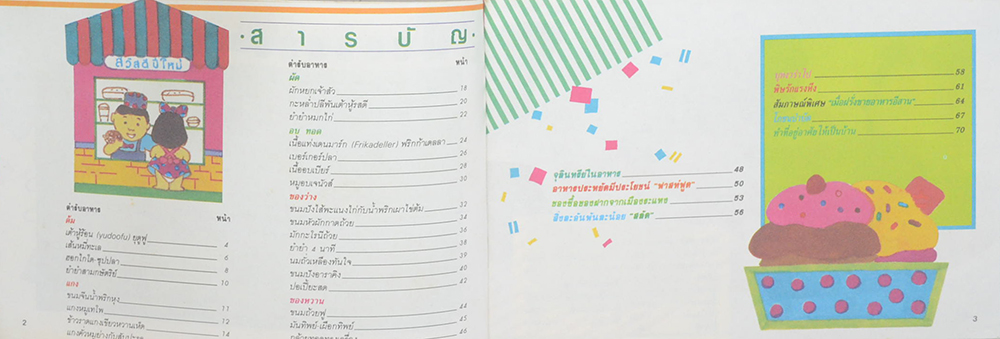 สวัสดีปีใหม่
สารบัญ
ตำรับอาหาร หน้า
ต้ม
เต้าหู้ร้อน (yudoofu) ยูดูฟู 4
เส้นหมี่ทะเล 6
ฮอกไกโด-ซุปปลา 8
ยำยำสามกษัตริย์ 10
แกง
ขนมจีนน้ำพริกหุง 11
แกงหมูเทโพ 12
ข้าวราดแกงเขียวหวานเห็ด 14
แกงคั่วหมูย่างกับสับปะรด
2
ตำรับอาหาร หน้า
ผัด
ผักหยกเจ้าสัว 18
กะหล่ำปลีพันเต้าหู้รสดี 20
ยำยำหมกไก่ 22
อบ ทอด
เนื้อแท่งเดนมาร์ก (Frikadeller) ฟริกก้าเดลลา 24
เบอร์เกอร์ปลา 26
เนื้ออบเบียร์ 28
หมูอบเจนัวส์ 30
ของว่าง
ขนมปังไส้พะแนงไก่กับน้ำพริกเผาไข่ต้ม 32
ขนมหัวผักกาดถ้วย 34
มักกะโรนีถ้วย 36
ยำยำ 4 นาที 38
นมถั่วเหลืองทันใจ 39
ขนมปังอาราคิง 40
ปอเปี๊ยะสด 42
ของหวาน
ขนมถ้วยฟู 44
มันทิพย์-เผือกทิพย์ 45
46
จุลินทรีย์ในอาหาร 48
อาหารประหยัดมีประโยชน์ "ฟาสท์ฟูด" 50
ของซื้อของฝากจากเมืองระแหง 53
สิ่งละอันพันละน้อย "สลัด" 56
58
พิษรักแรงหึง 61
สัมภาษณ์พิเศษ "เมื่อฝรั่งขายอาหารอีสาน" 64
โภชนบำบัด 67
ทำที่อยู่อาศัยให้เป็นบ้าน 70
3